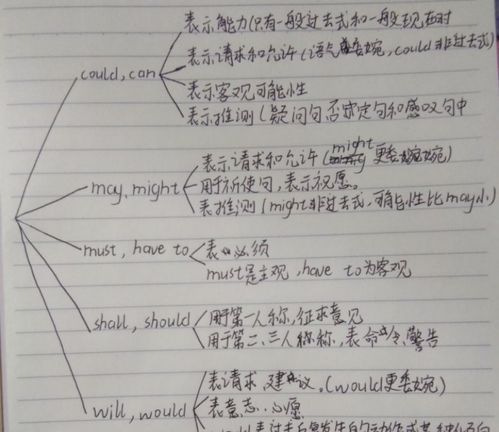 could, can
表示能力(只有一般过去式和一般现在时
表示请求和允许(语气委婉, could非过去式)
表示客观可能性
表示推测(疑问句否定句和感叹句中
may, might
表示请求和允许(might更委婉)
用于祈使句,表示祝愿。
表推测(might非过去式,可能性比may小)
must, have to
表必须
must是主观, have to为客观
shall, should
用于第一人称,征求意见
用于第二、三人称称,表命令、警告
will, would
表请求、建议。(would更委婉)
表意志..心愿